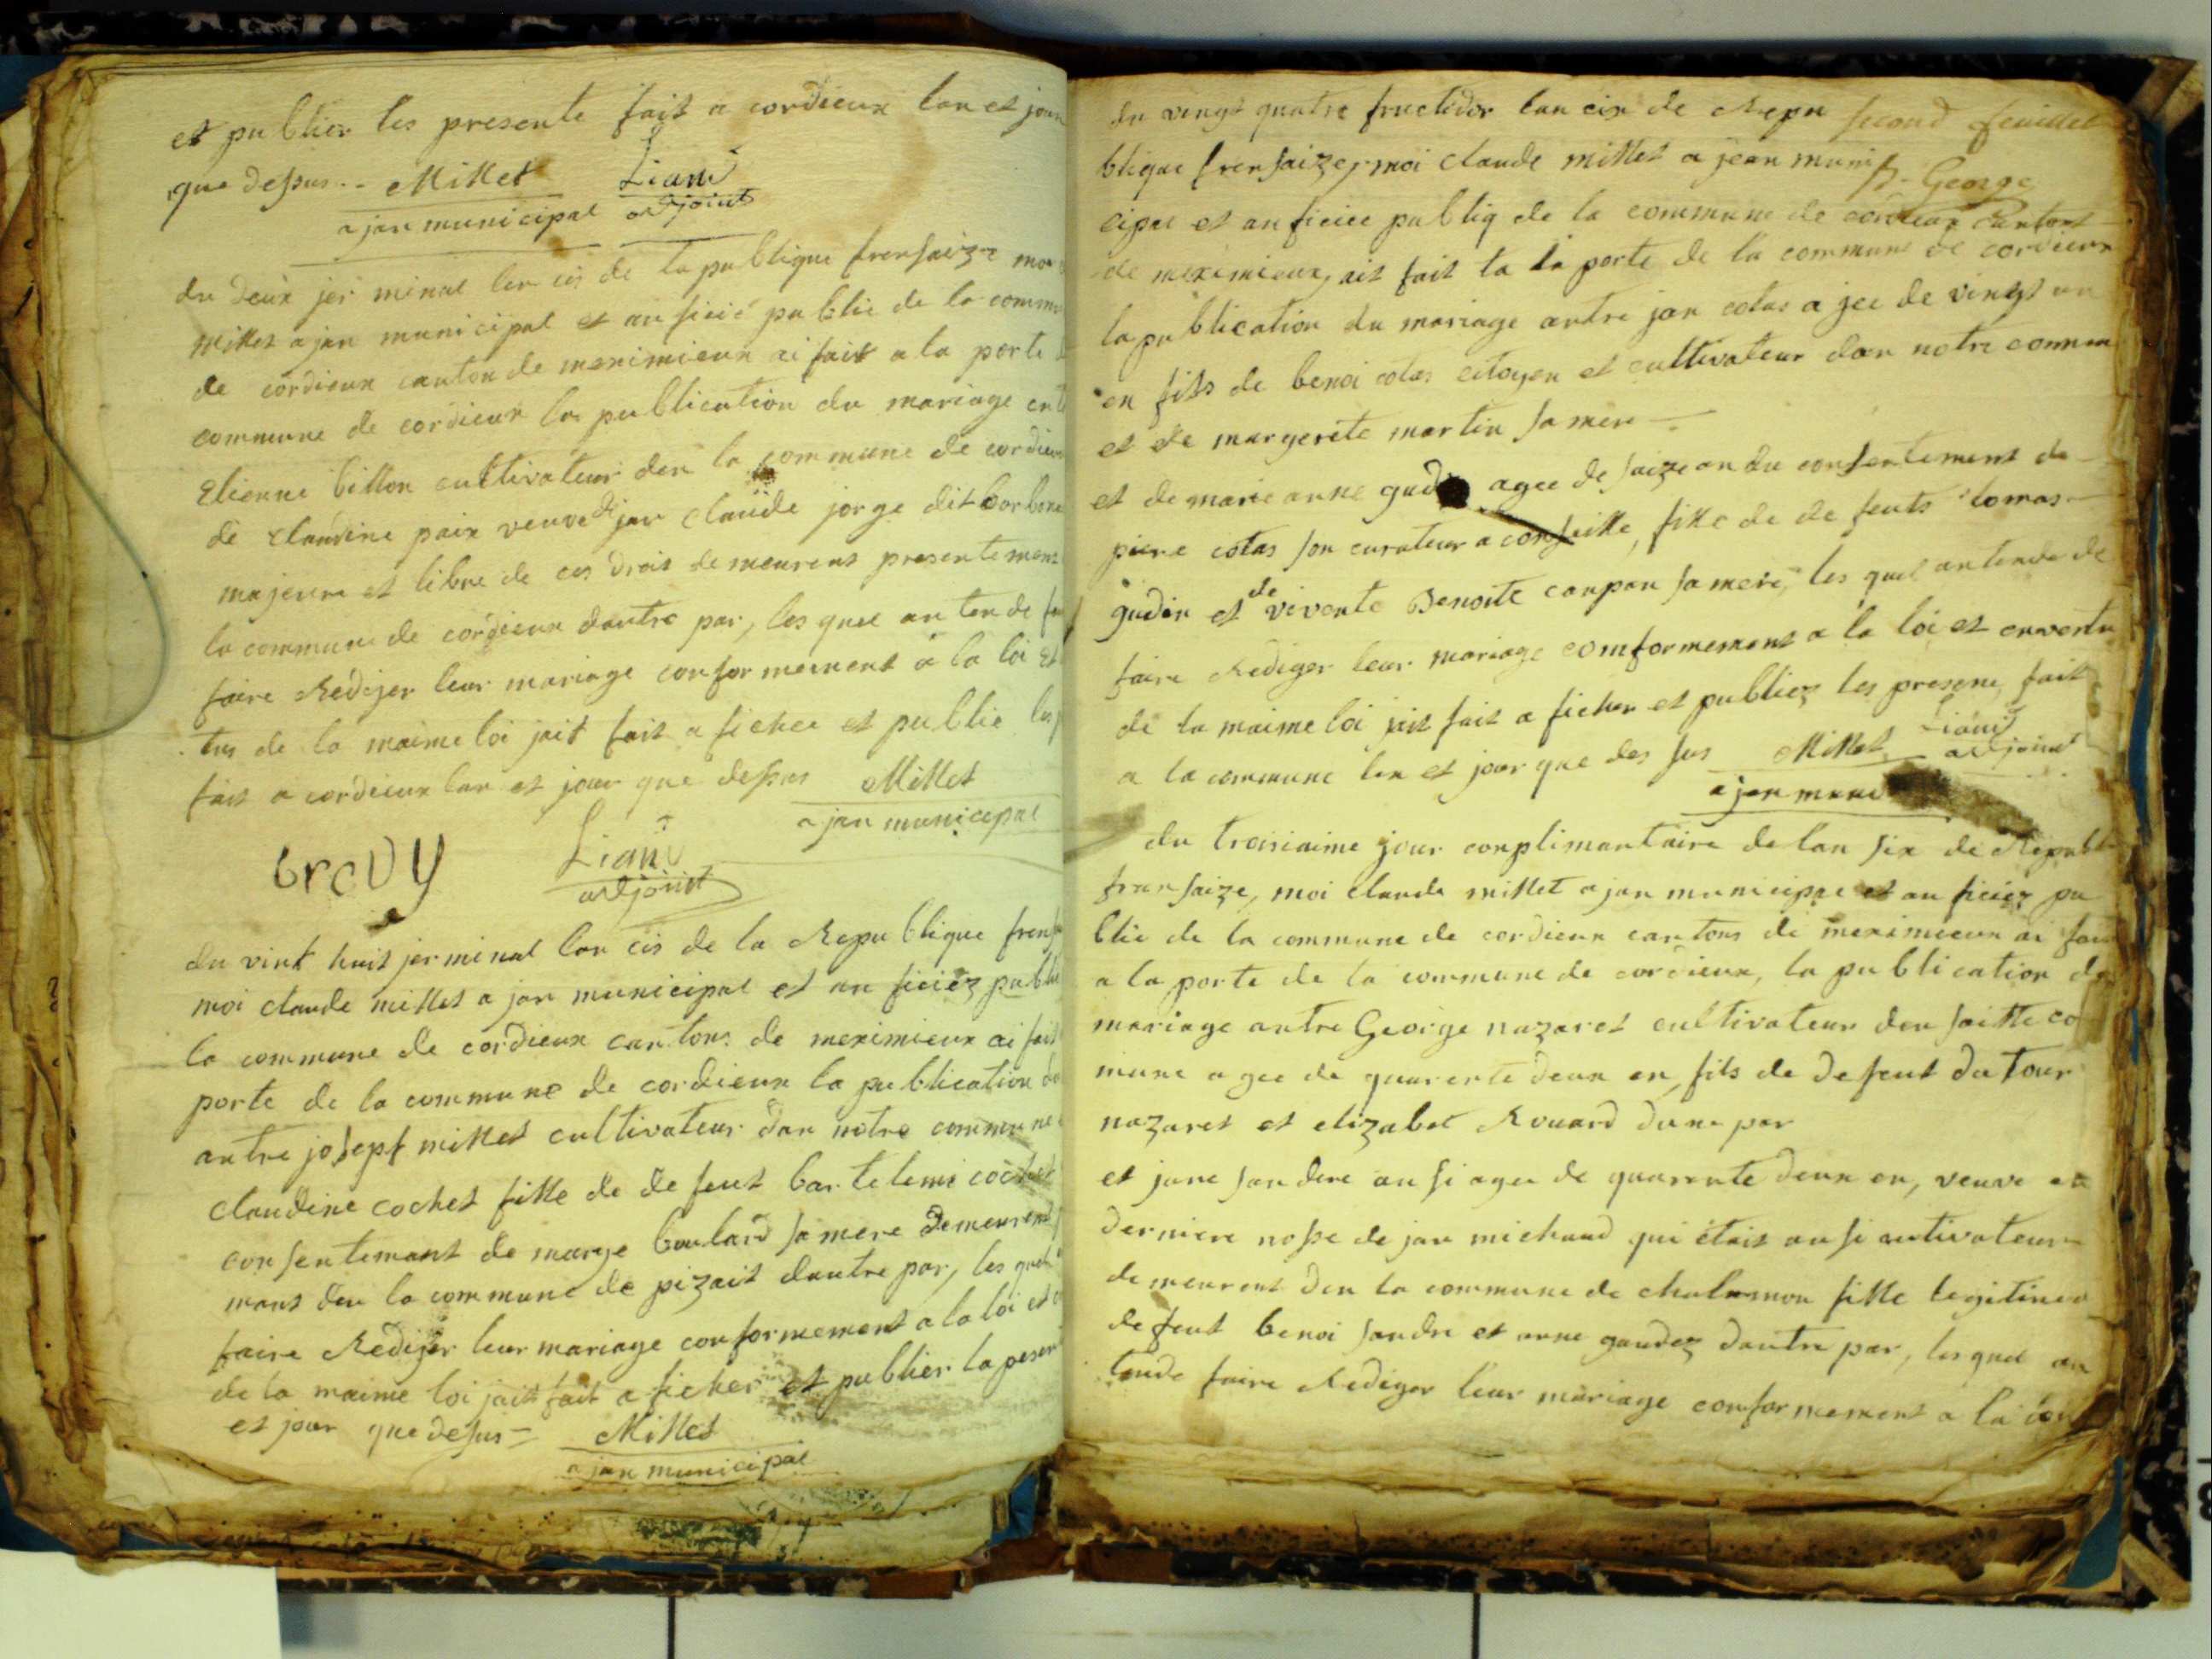 et publier les presente fait a cordieux lan et jour
que dessus -- Millet Liani
ajan municipal adjoint
du deux jerminal lan cis de la publique frensaize moi
Millet ajan municipal et au ficié public de la commu
de cordieux canton de meximieux ai fait a la porte d
commune de cordieux la publication du mariage ent
Etienne billon cultivateur den la commune de cordieu
de Claudine paix veuve de jan Claude jorge dit borbon
majeure et libre de ces drois demeurent presentement
la commune de cordieux dautre par, les quel antende
faire Redijer leur mariage conformement a la loi et
tus de la maime loi jait fait a ficher et publie les
fait a cordieux lan et jour que dessus Millet
ajan municipal
brevy Liani
adjoint
du vint huit jerminal lan cis de la Republique frensa
moi claude millet a jan municipal et au ficiéz publi
la commune de cordieux cantons de meximieux ai fait
porte de la commune de cordieux la publication du
antre josept millet cultivateur dan notre commune
claudine cochet fille de defeut bartelemi cochet
consentemant de marye boulard sa mere demeurend
mant den la commune de pizait dautre par, les quel
faire Redijer leur mariage conformement a la loi et
de la maime loi jait fait a ficher et publier la presen
et jour que desus = Millet
ajan municipal
second feuillet
du vingt quatre fructidor lan cix de Repu
blique frensaize, moi claude millet a jean muni
St. George
cipal et au ficiee publiq de la commune de cordieux canton
de meximieux, ait fait ta la porte de la commune de cordieux
la publication du mariage antre jan colas a jee de vingt un
en fils de benoi colas citoyen et cultivateur dan notre commu
et de margerite martin sa mere —
et de marie anne gudin agee de saize an du consentement de
piere colas son curateur a conseille, fille de de feuts tomas —
gudin et de vivente Benoite conpan sa mere, les quel antende de
faire Rediger leur mariage comformement a la loi et envertu
de la maime loi jait fait a ficher et publiez les presene, fait
a la commune lan et jour que des sus Millet Liani
ajan muni adjoint
du troisiaime jour conplimantaire de lan six de Republi
fransaize, moi claude millet a jan municipal et au ficiez pu
blic de la commune de cordieux cantons de meximieux ai fait
a la porte de la commune de cordieux, la publication de
mariage antre George nazaret cultivateur den saitte co
mune agee de quarente deux en, fils de defeut du tour
nazaret et elizabet Rouard dune par
et jane sandre ausi agee de quarente deux en, veuve en
derniere nosse de jan michaud qui étais ausi cultivateur
demeurent den la commune de chalamon fille legitime
defeut benoi sandre et anne gaudez dautre par, les quel an
tende faire Rediger leur mariage conformement a la loi